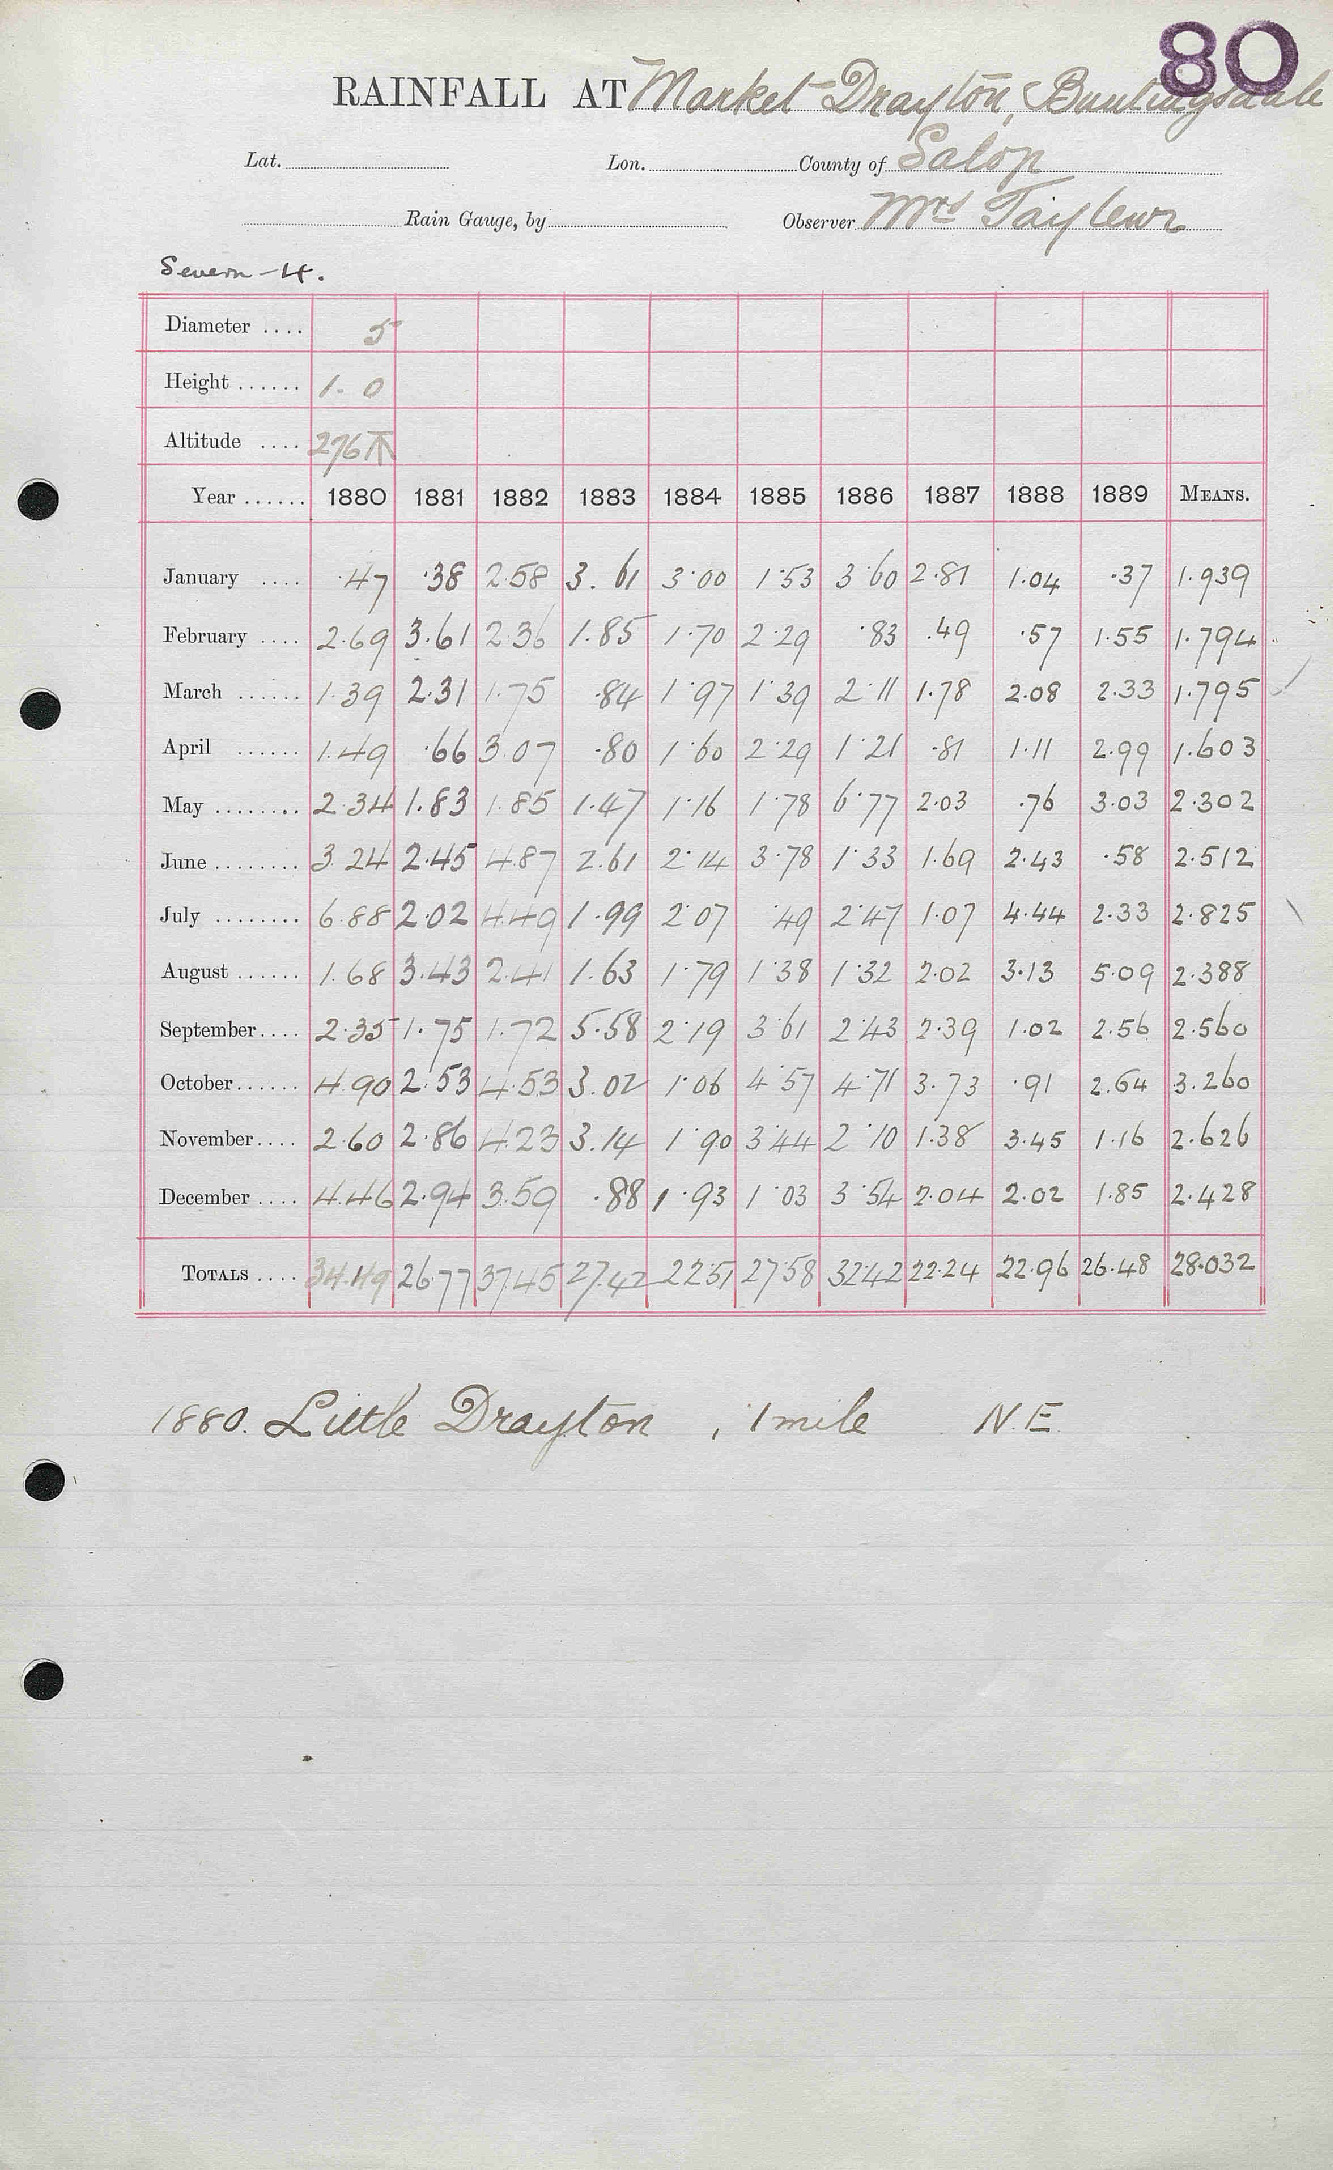 80
RAINFALL AT Market Drayton, Buntingsdale
Lat. Lon. County of Salop
Rain Gauge, by Observer Mrs Tayleur
Severn - 4.
Diameter .... 5
Height ...... 1. 0
Altitude .... 276
Year ...... 1880 1881 1882 1883 1884 1885 1886 1887 1888 1889 MEANS.
January .... .47 .38 2.58 3.61 3.00 1.53 3.60 2.81 1.04 .37 1.939
February .... 2.69 3.61 2.36 1.85 1.70 2.29 .83 .49 .57 1.55 1.794
March ...... 1.39 2.31 1.75 .84 1.97 1.39 2.11 1.78 2.08 2.33 1.795
April ...... 1.49 .66 3.07 .80 1.60 2.29 1.21 .81 1.11 2.99 1.603
May ........ 2.34 1.83 1.85 1.47 1.16 1.78 6.77 2.03 .76 3.03 2.302
June ........ 3.24 2.45 4.87 2.61 2.14 3.78 1.33 1.69 2.43 .58 2.512
July ........ 6.88 2.02 4.49 1.99 2.07 .49 2.47 1.07 4.44 2.33 2.825
August ...... 1.68 3.43 2.41 1.63 1.79 1.38 1.32 2.02 3.13 5.09 2.388
September .... 2.35 1.75 1.72 5.58 2.19 3.61 2.43 2.39 1.02 2.56 2.560
October ...... 4.90 2.53 4.53 3.02 1.06 4.57 4.71 3.73 .91 2.64 3.260
November .... 2.60 2.86 4.23 3.14 1.90 3.44 2.10 1.38 3.45 1.16 2.626
December .... 4.46 2.94 3.59 .88 1.93 1.03 3.54 2.04 2.02 1.85 2.428
TOTALS .... 34.49 26.77 37.45 27.42 22.51 27.58 32.42 22.24 22.96 26.48 28.032
1880. Little Drayton, 1 mile N.E.